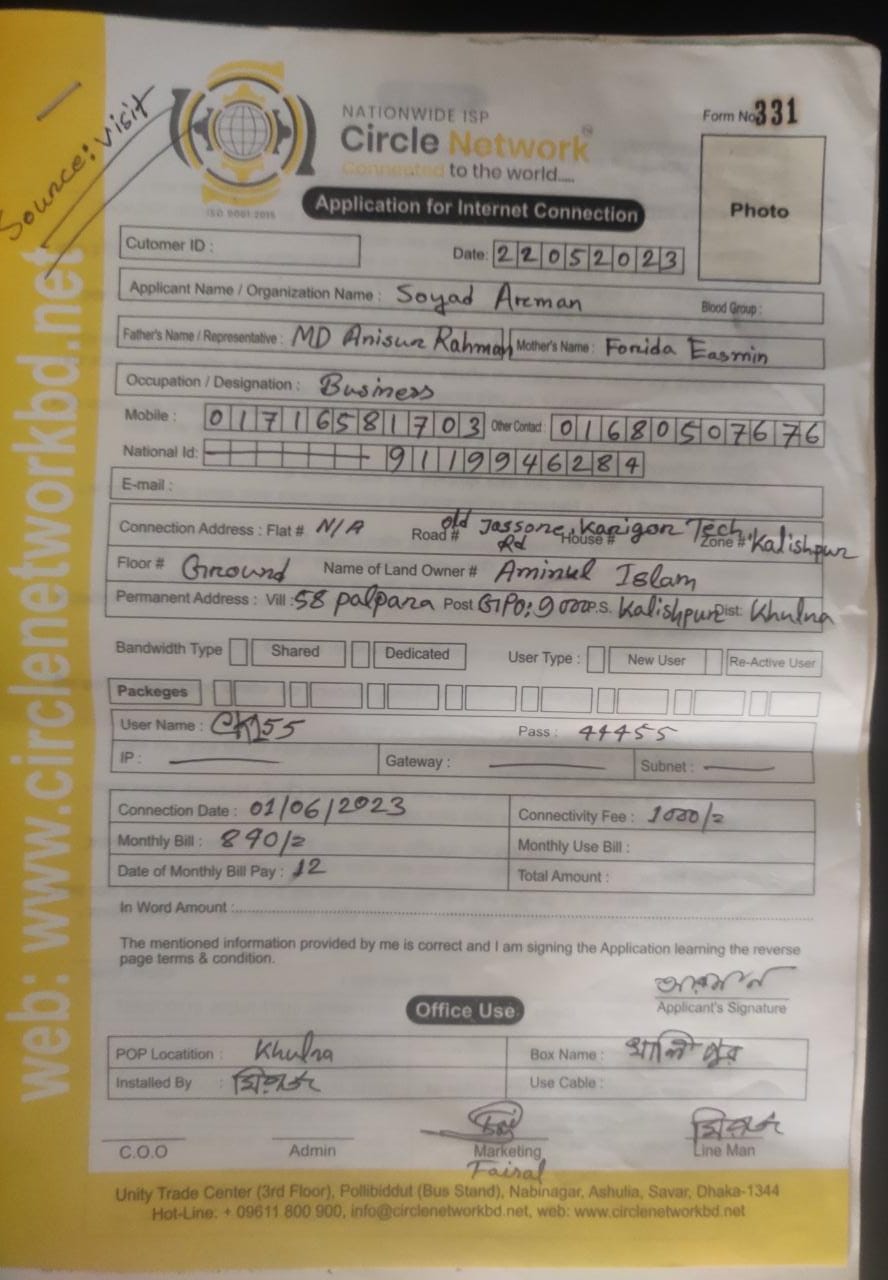 Source: Visit
NATIONWIDE ISP
Circle Network
Connected to the world.....
ISO 9001:2015
Form No 331
Photo
Application for Internet Connection
Cutomer ID :
Date: 22052023
Applicant Name / Organization Name : Soyad Arman Blood Group :
Father's Name / Representative : MD Anisur Rahman Mother's Name : Forida Easmin
Occupation / Designation : Business
Mobile : 01716581703 Other Contact : 01680507676
National Id: 9119946284
E-mail :
Connection Address : Flat # N/A Road # old Jassore Rd House # Karigori Tech Zone # Kalishpur
Floor # Ground Name of Land Owner # Aminul Islam
Permanent Address : Vill : 58 palpara Post GPO: 9000 P.S. Kalishpur Dist: Khulna
Bandwidth Type Shared Dedicated User Type : New User Re-Active User
Packeges
User Name : CK155 Pass : 44455
IP : Gateway : Subnet :
Connection Date : 01/06/2023 Connectivity Fee : 1000/=
Monthly Bill : 890/= Monthly Use Bill :
Date of Monthly Bill Pay : 12 Total Amount :
In Word Amount :
The mentioned information provided by me is correct and I am signing the Application learning the reverse
page terms & condition.
আরমান
Applicant's Signature
Office Use
POP Locatition : Khulna Box Name : খালিশপুর
Installed By : মিরাজ Use Cable :
মিরাজ
C.O.O Admin Marketing Line Man
Faisal
Unity Trade Center (3rd Floor), Pollibiddut (Bus Stand), Nabinagar, Ashulia, Savar, Dhaka-1344
Hot-Line. + 09611 800 900, info@circlenetworkbd.net, web: www.circlenetworkbd.net
web: www.circlenetworkbd.net